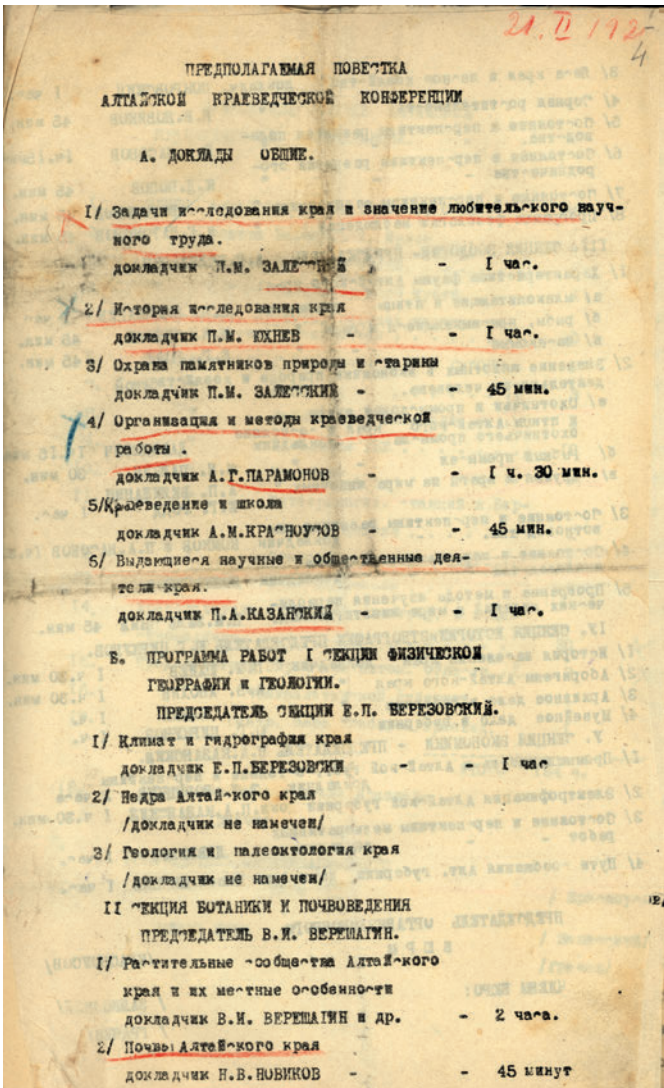 21.II 192
4
ПРЕДПОЛАГАЕМАЯ ПОВЕСТКА
АЛТАЙСКОЙ КРАЕВЕДЧЕСКОЙ КОНФЕРЕНЦИИ
А. ДОКЛАДЫ ОБЩИЕ.
I/ Задачи исследования края и значение любительского науч-
ного труда.
докладчик П.М. ЗАЛЕССКИЙ - I час.
2/ История исследования края
докладчик П.М. ЮХНЕВ - - I час.
3/ Охрана памятников природы и старины
докладчик П.М. ЗАЛЕССКИЙ - - 45 мин.
4/ Организация и методы краеведческой
работы .
докладчик А.Г.ПАРАМОНОВ - - I ч. 30 мин.
5/Краеведение и школа
докладчик А.М.КРАСНОУСОВ - - 45 мин.
6/ Выдающиеся научные и общественные дея-
тели края.
докладчик П.А.КАЗАНСКИЙ - - I час.
Б. ПРОГРАММА РАБОТ I СЕКЦИИ ФИЗИЧЕСКОЙ
ГЕОГРАФИИ и ГЕОЛОГИИ.
ПРЕДСЕДАТЕЛЬ СЕКЦИИ Е.П. БЕРЕЗОВСКИЙ.
I/ Климат и гидрография края
докладчик Е.П.БЕРЕЗОВСКИ - - I час
2/ Недра Алтайского края
/докладчик не намечен/
3/ Геология и палеоктология края
/докладчик не намечен/
II СЕКЦИЯ БОТАНИКИ И ПОЧВОВЕДЕНИЯ
ПРЕДСЕДАТЕЛЬ В.И. ВЕРЕЩАГИН.
I/ Растительные сообщества Алтайского
края и их местные особенности
докладчик В.И. ВЕРЕЩАГИН и др. - 2 часа.
2/ Почвы Алтайского края
докладчик Н.В.НОВИКОВ - - 45 минут